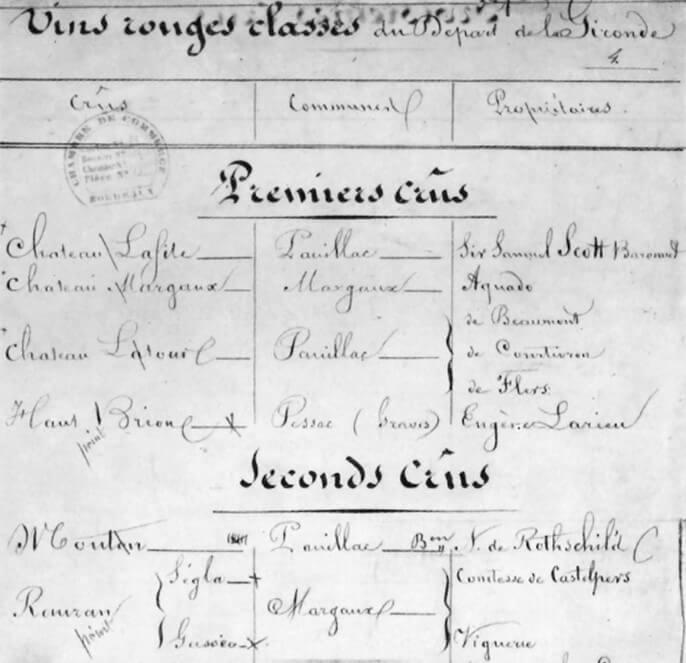 Vins rouges classés du Départ de la Gironde
4
Crûs Communes Propriétaires
CHAMBRE DE COMMERCE
BORDEAUX
Premiers Crûs
Chateau Lafite Pauillac Sir Samuel Scott Baronnet
Chateau Margaux Margaux Aguado
de Beaumont
Chateau Latour Pauillac de Courtivron
de Flers
Haut Brion Pessac (Graves) Eugène Larieu
point
Seconds Crûs
Mouton Pauillac Bon N. de Rothschild
Ségla Comtesse de Castelpers
Rauzan Margaux
point
Gassies Viguerie